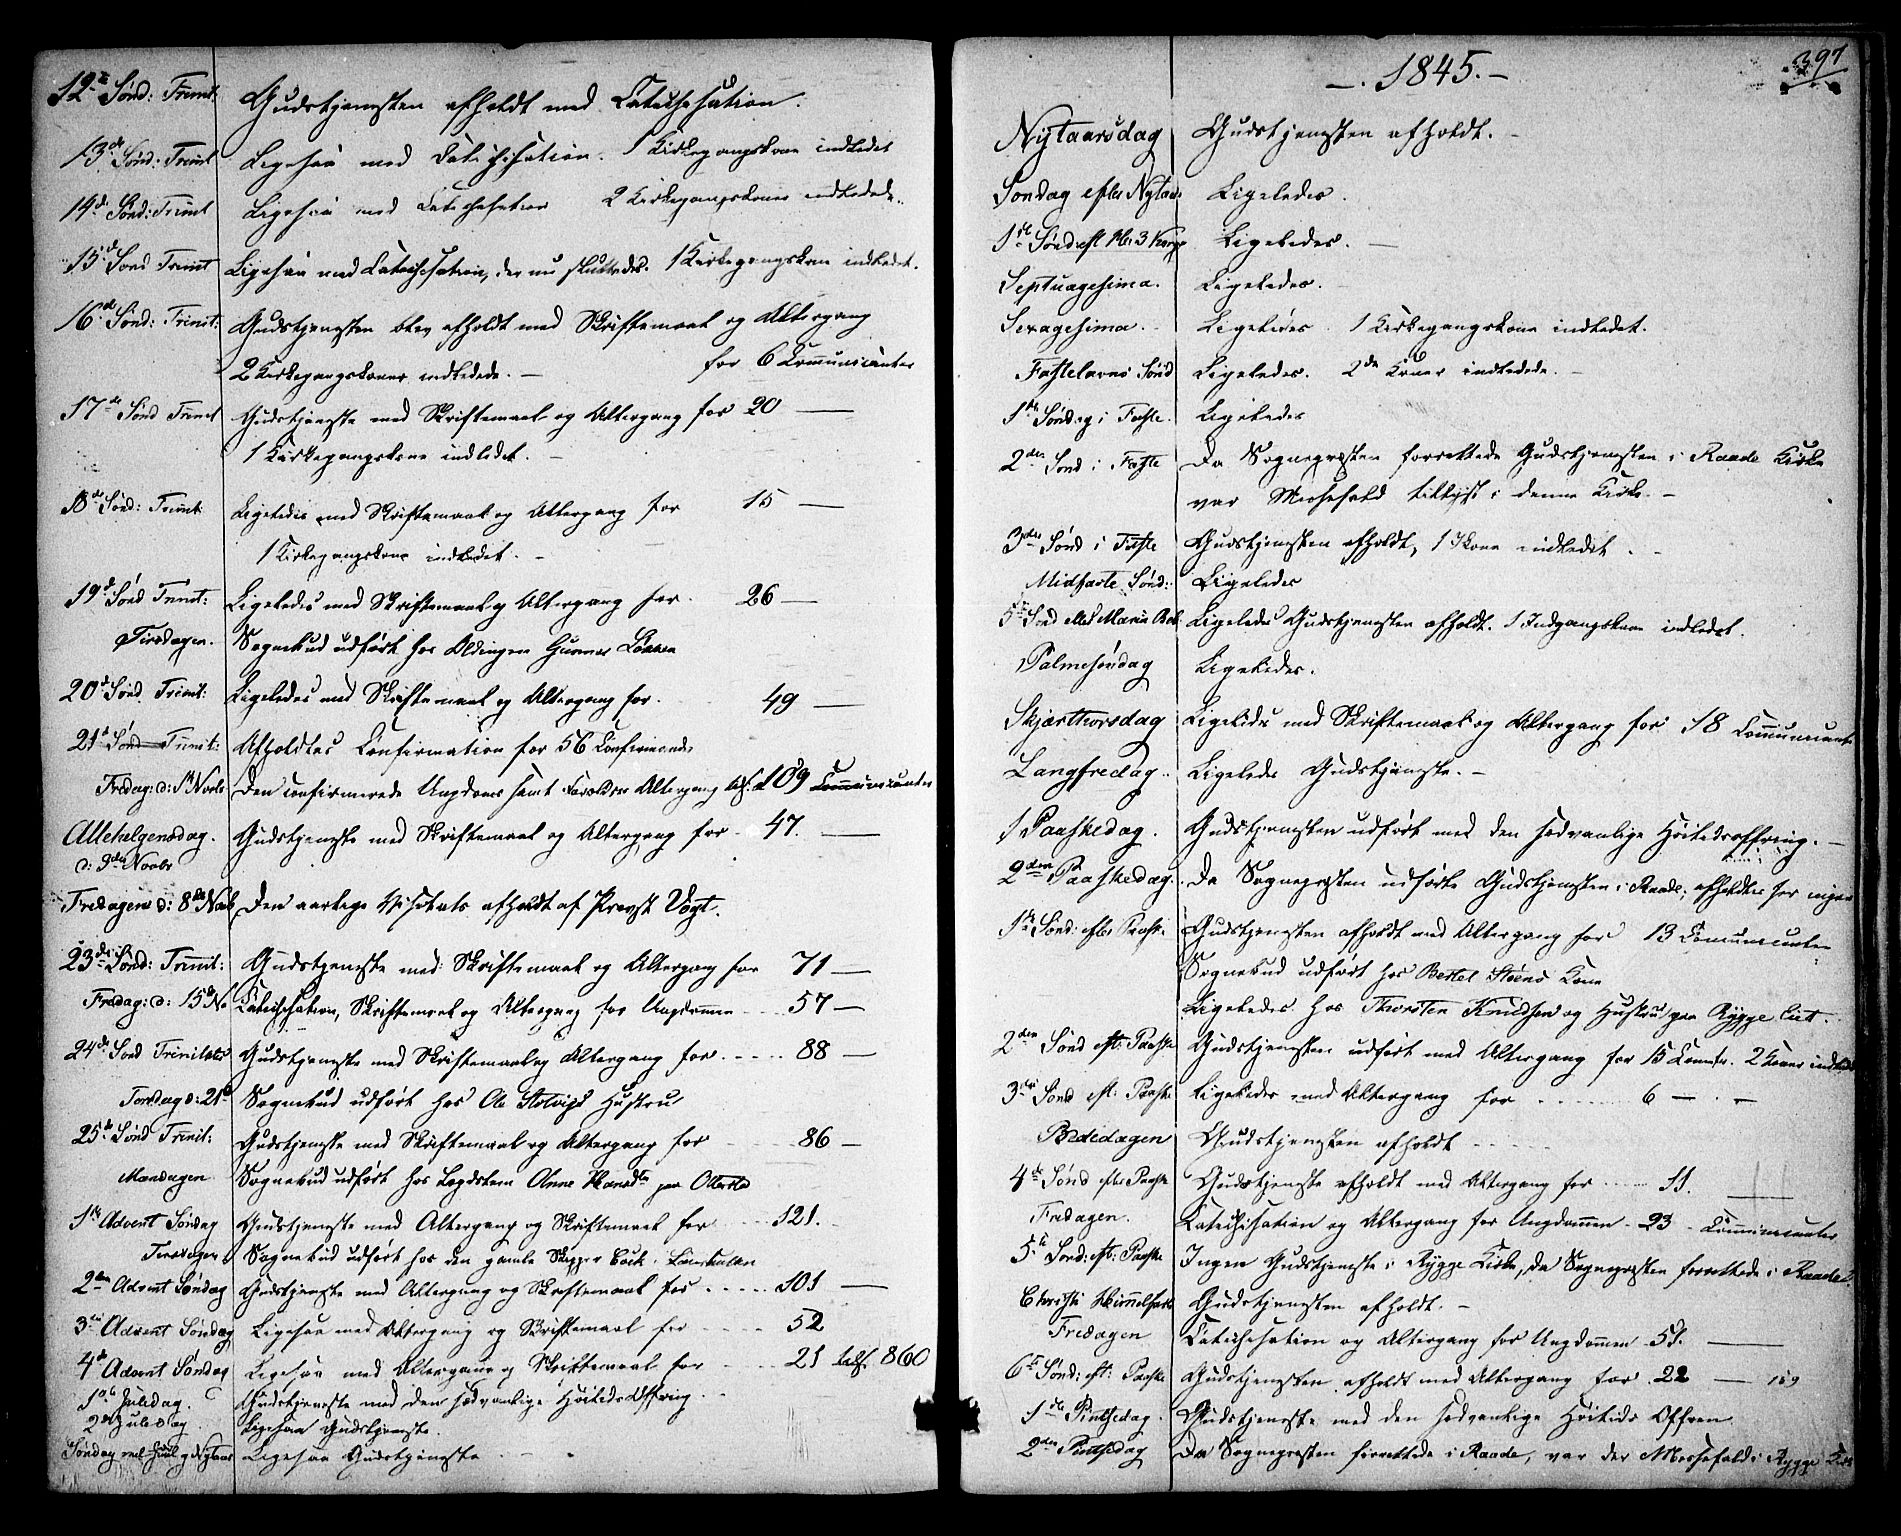 12te Sønd: Trinit: Gudstjenesten afholdt med Catechisation.
13de Sønd: Trinit Ligesaa med Catechisation. 1 Kirkegangskone indledet
14de Sønd: Trinit Ligesaa med Catechisation 2 Kirkegangskoner indledede.
15de Sond Trinit Ligesaa med Catechisation, der nu sluttedes. 1 Kirkegangskone indledet.
16de Sønd: Trinit: Gudstjenesten blev afholdt med Skriftemaal og Altergang
2 Kirkegangskoner indledede. — for 6 Communicanter
17de Sønd Trinit Gudstjeneste med Skriftemaal og Altergang for 20 —
1 Kirkegangskone indledet. —
18de Sønd: Trinit Ligeledes med Skriftemaal og Altergang for 15 —
1 Kirkegangskone indledet. —
19de Sønd Trinit: Ligeledes med Skriftemaal og Altergang for 26 —
Tirsdagen. Sognebud udført hos Gunner
20de Sønd Trinit: Ligeledes med Skriftemaal og Altergang for. 49 —
21de Sønd Trinit: Afholdtes Confirmation for 56 Confirmander
Fredag: d: 1ste Novbr Den confirmerede Ungdoms samt Forældres Altergang 109 Communicanter
Allehelgensdag. Gudstjeneste med Skriftemaal og Altergang for 47. —
d: 3die Novbr
Fredagen d: 8de Nov Den aarlige Visitats afholdt af Provst Vogt.
23de Sønd: Trinit: Gudstjeneste med Skriftemaal og Altergang for 71 —
Fredag: d: 15de No Catechisation, Skriftemaal og Altergang for Ungdommen 57 —
24de Sond Trinitats Gudstjeneste med Skriftemaal og Altergang for 88 —
Torsdag d: 21de Sognebud udført hos Ole Hustru
25de Sønd Trinit: Gudstjeneste med Skriftemaal og Altergang for 86 —
Mandagen Sognebud udført hos Anne Hansdtr paa
1ste Advent Søndag Gudstjeneste med Altergang og Skriftemaal for 121.
Tirsdagen Sognebud udført hos den gamle Skipper
2den Advent Søndag Gudstjeneste med Altergang og Skriftemaal for 101 —
3die Advent Søndag Ligesaa med Altergang og Skriftemaal for 52
4de Advent Søndag Ligesaa med Altergang og Skriftemaal for 21 860
1ste Juledag. Gudstjeneste med den sædvanlige Høitids Offring.
2den Juledag Ligesaa Gudstjeneste.
Søndag mel. Juul og Nytaar Ligesaa Gudstjeneste
397
—. 1845. —
Nytaarsdag Gudstjenesten afholdt. —
Søndag efter Nytaar Ligeledes.
1ste Sønd: eft Hel: 3 Konge Ligeledes. —
Septuagesima. Ligeledes.
Sexagesima. Ligeledes. 1 Kirkegangskone indledet.
Fastelavns Sønd Ligeledes. 2de Koner indledede. —
1ste Søndag i Faste. Ligeledes
2den Sond i Faste Da Sognepræsten forrettede Gudstjenesten i Raade Kirke
var Messefald tillyst i denne Kirke. —
3die Sønd i Faste Gudstjenesten afholdt, 1 Kone indledet.
Midfaste Sønd: Ligeledes
5te Sønd Maria Ligeledes Gudstjenesten afholdt. 1 Indgangskone indledet.
Palmesøndag Ligeledes.
Skjærthorsdag Ligeledes med Skriftemaal og Altergang for 18 Communicanter
Langfredag. Ligeledes Gudstjeneste. —
1 Paaskedag. Gudstjenesten udført med den sædvanlige Høitidsoffring. —
2den Paaskedag. Da Sognepræsten udførte Gudstjenesten i Raade, afholdtes her ingen
1ste Sønd: efter Paaske Gudstjenesten afholdt med Altergang for 13 Communicanter
Sognebud udført hos Kone
Ligeledes hos Thorsten Knudsen og Hustru paa Rygge
2den Sønd eft: Paaske Gudstjenesten udført med Altergang for 15 Commtr. 2 Koner indledede
3die Sønd eft: Paaske Ligeledes med Altergang for 6 —
Bededagen Gudstjenesten afholdt
4de Sønd efter Paaske Gudstjeneste afholdt med Altergang for 11. —
Fredagen. Catechisation og Altergang for Ungdommen 23 Communicanter
5te Sønd: eft: Paaske Ingen Gudstjeneste i Rygge Kirke, da Sognepræsten forrettede i Raade.
Christi Himmelfart Gudstjenesten afholdt. —
Fredagen Catechisation og Altergang for Ungdommen 51. —
6te Sønd: eft: Paaske Gudstjenesten afholdt med Altergang for 22 —
1ste Pintsedag. Gudstjeneste med den sædvanlige Høitids Offren
2den Pintsedag Da Sognepræsten forrettede i Raade, var der Messefald i Rygge Kirke